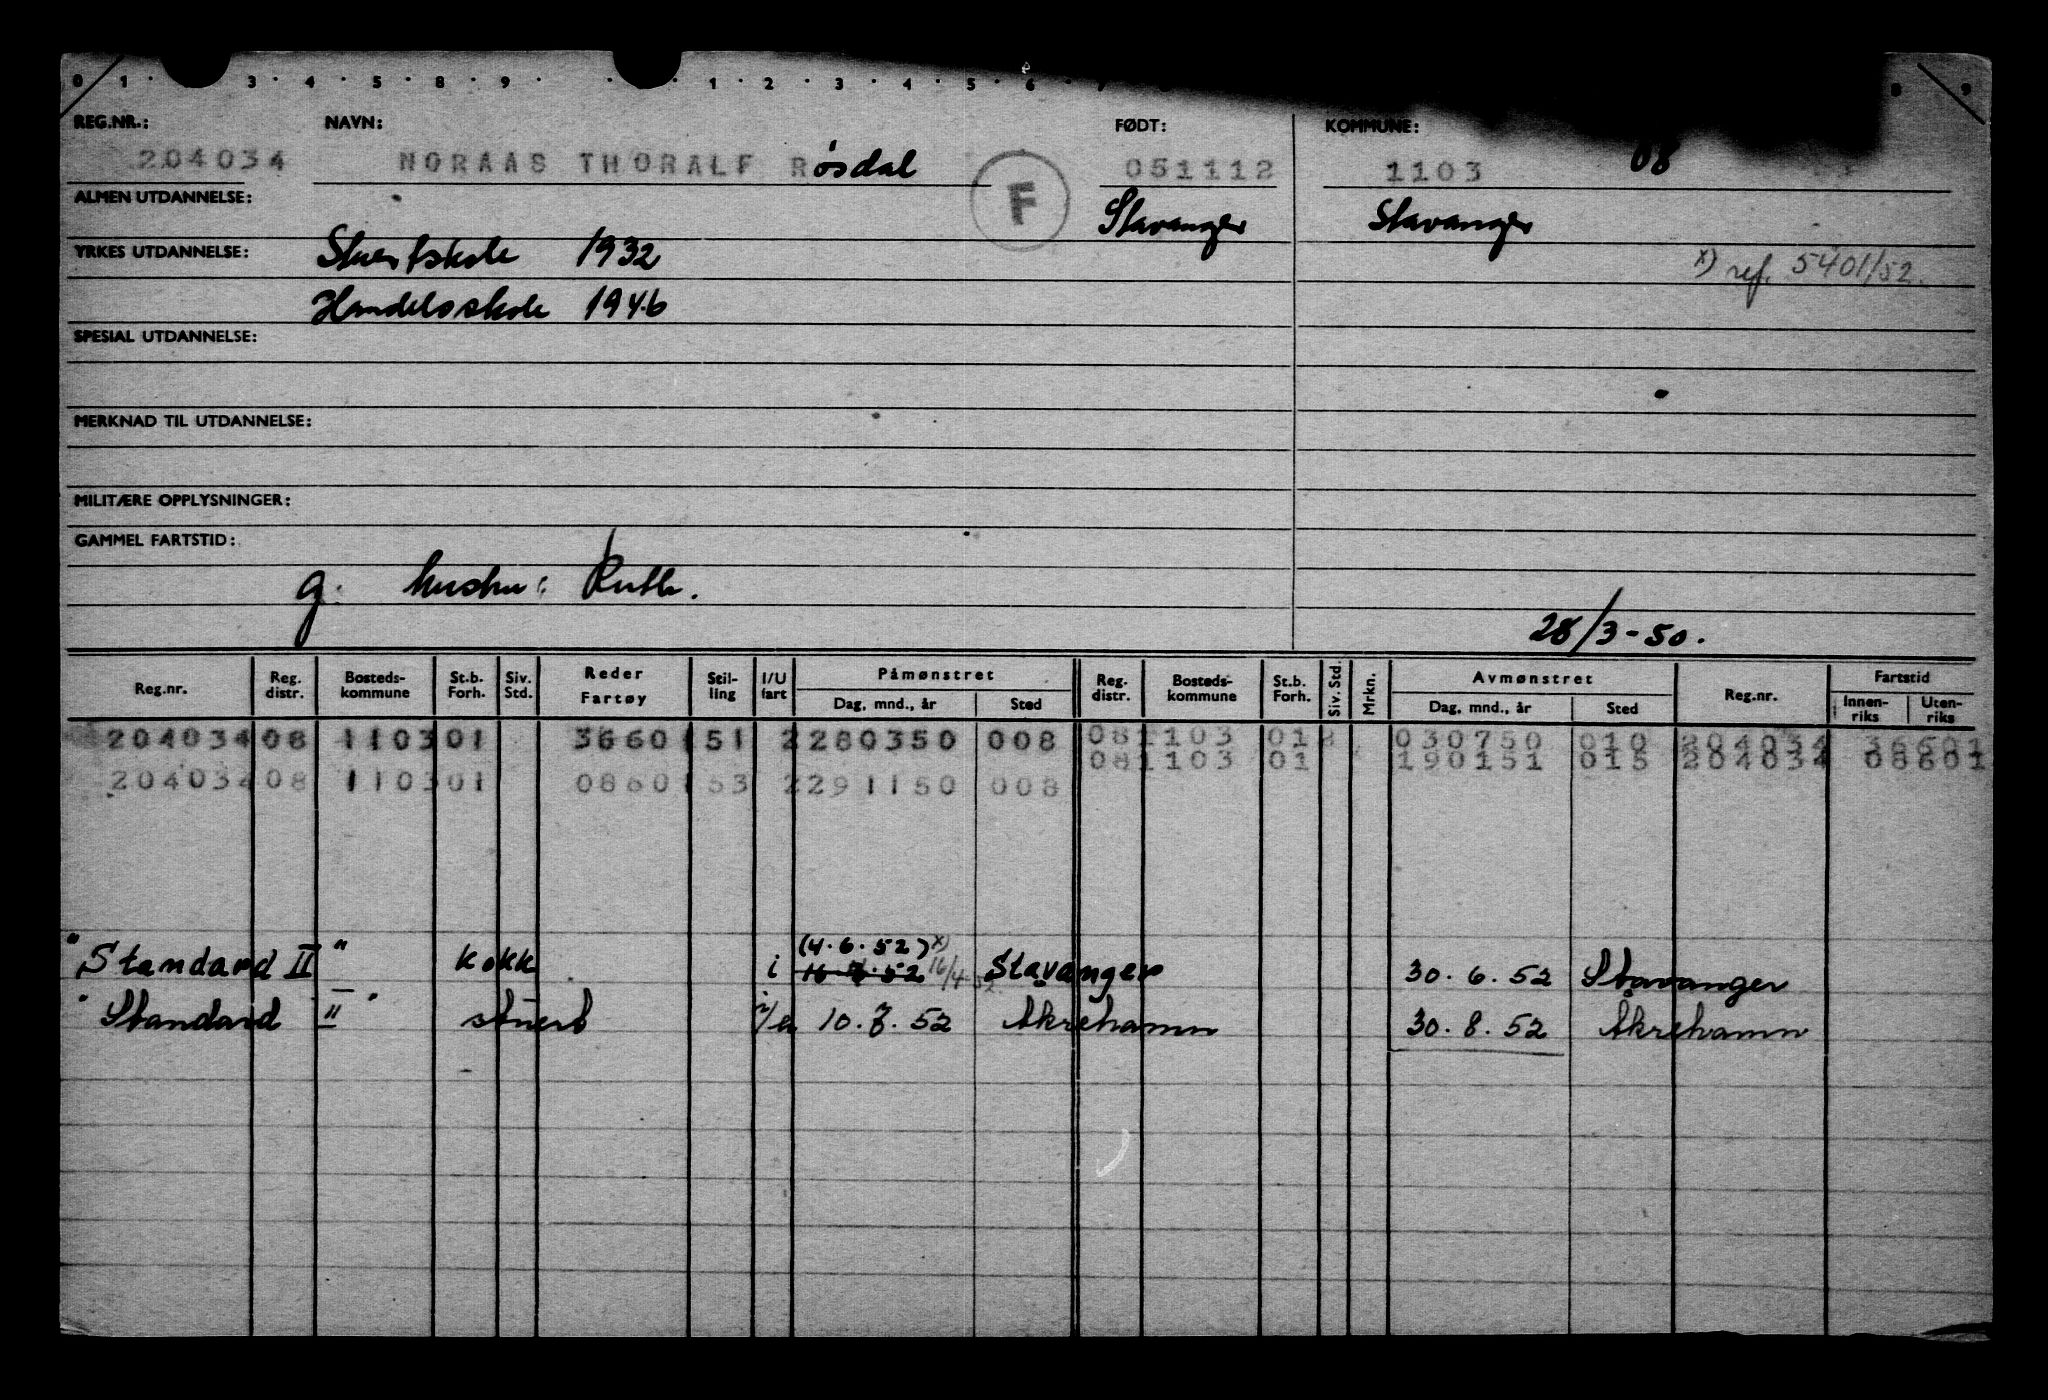 0 1 · 3 · 4 · 5 · 8 · 9 · · · 1 · 2 · 3 · 4 · 5 · 6 · 7 8 9
REG.NR.: NAVN: FØDT: KOMMUNE:
204034 NORAAS THORALF Røsdal F 051112 1103 08
ALMEN UTDANNELSE: Stavanger Stavanger
YRKES UTDANNELSE: Stuertskole 1932 x) ref. 5401/52.
Handelsskole 1946
SPESIAL UTDANNELSE:
MERKNAD TIL UTDANNELSE:
MILITÆRE OPPLYSNINGER:
GAMMEL FARTSTID:
g. hustru: Ruth.
28/3-50.
Reg.nr. Reg. distr. Bosteds-kommune St.b. Forh. Siv. Std. Reder Fartøy Stil-ling I/U fart Påmønstret Dag, mnd., år Sted Reg. distr. Bosteds-kommune St.b. Forh. Siv. Std. Mrkn. Avmønstret Dag, mnd., år Sted Reg.nr. Fartstid Innen-riks Uten-riks
204034 08 1103 01 3660 151 2 280350 008 08 1103 01 030750 010 204034 36601
08 1103 01 190151 015 204034 08601
204034 08 1103 01 0860 153 2 291150 008
(4.6.52) x)
"Standard II" kokk i 16/4 Stavanger 30.6.52 Stavanger
"Standard II" stuert 10.7.52 Åkrehamn 30.8.52 Åkrehamn